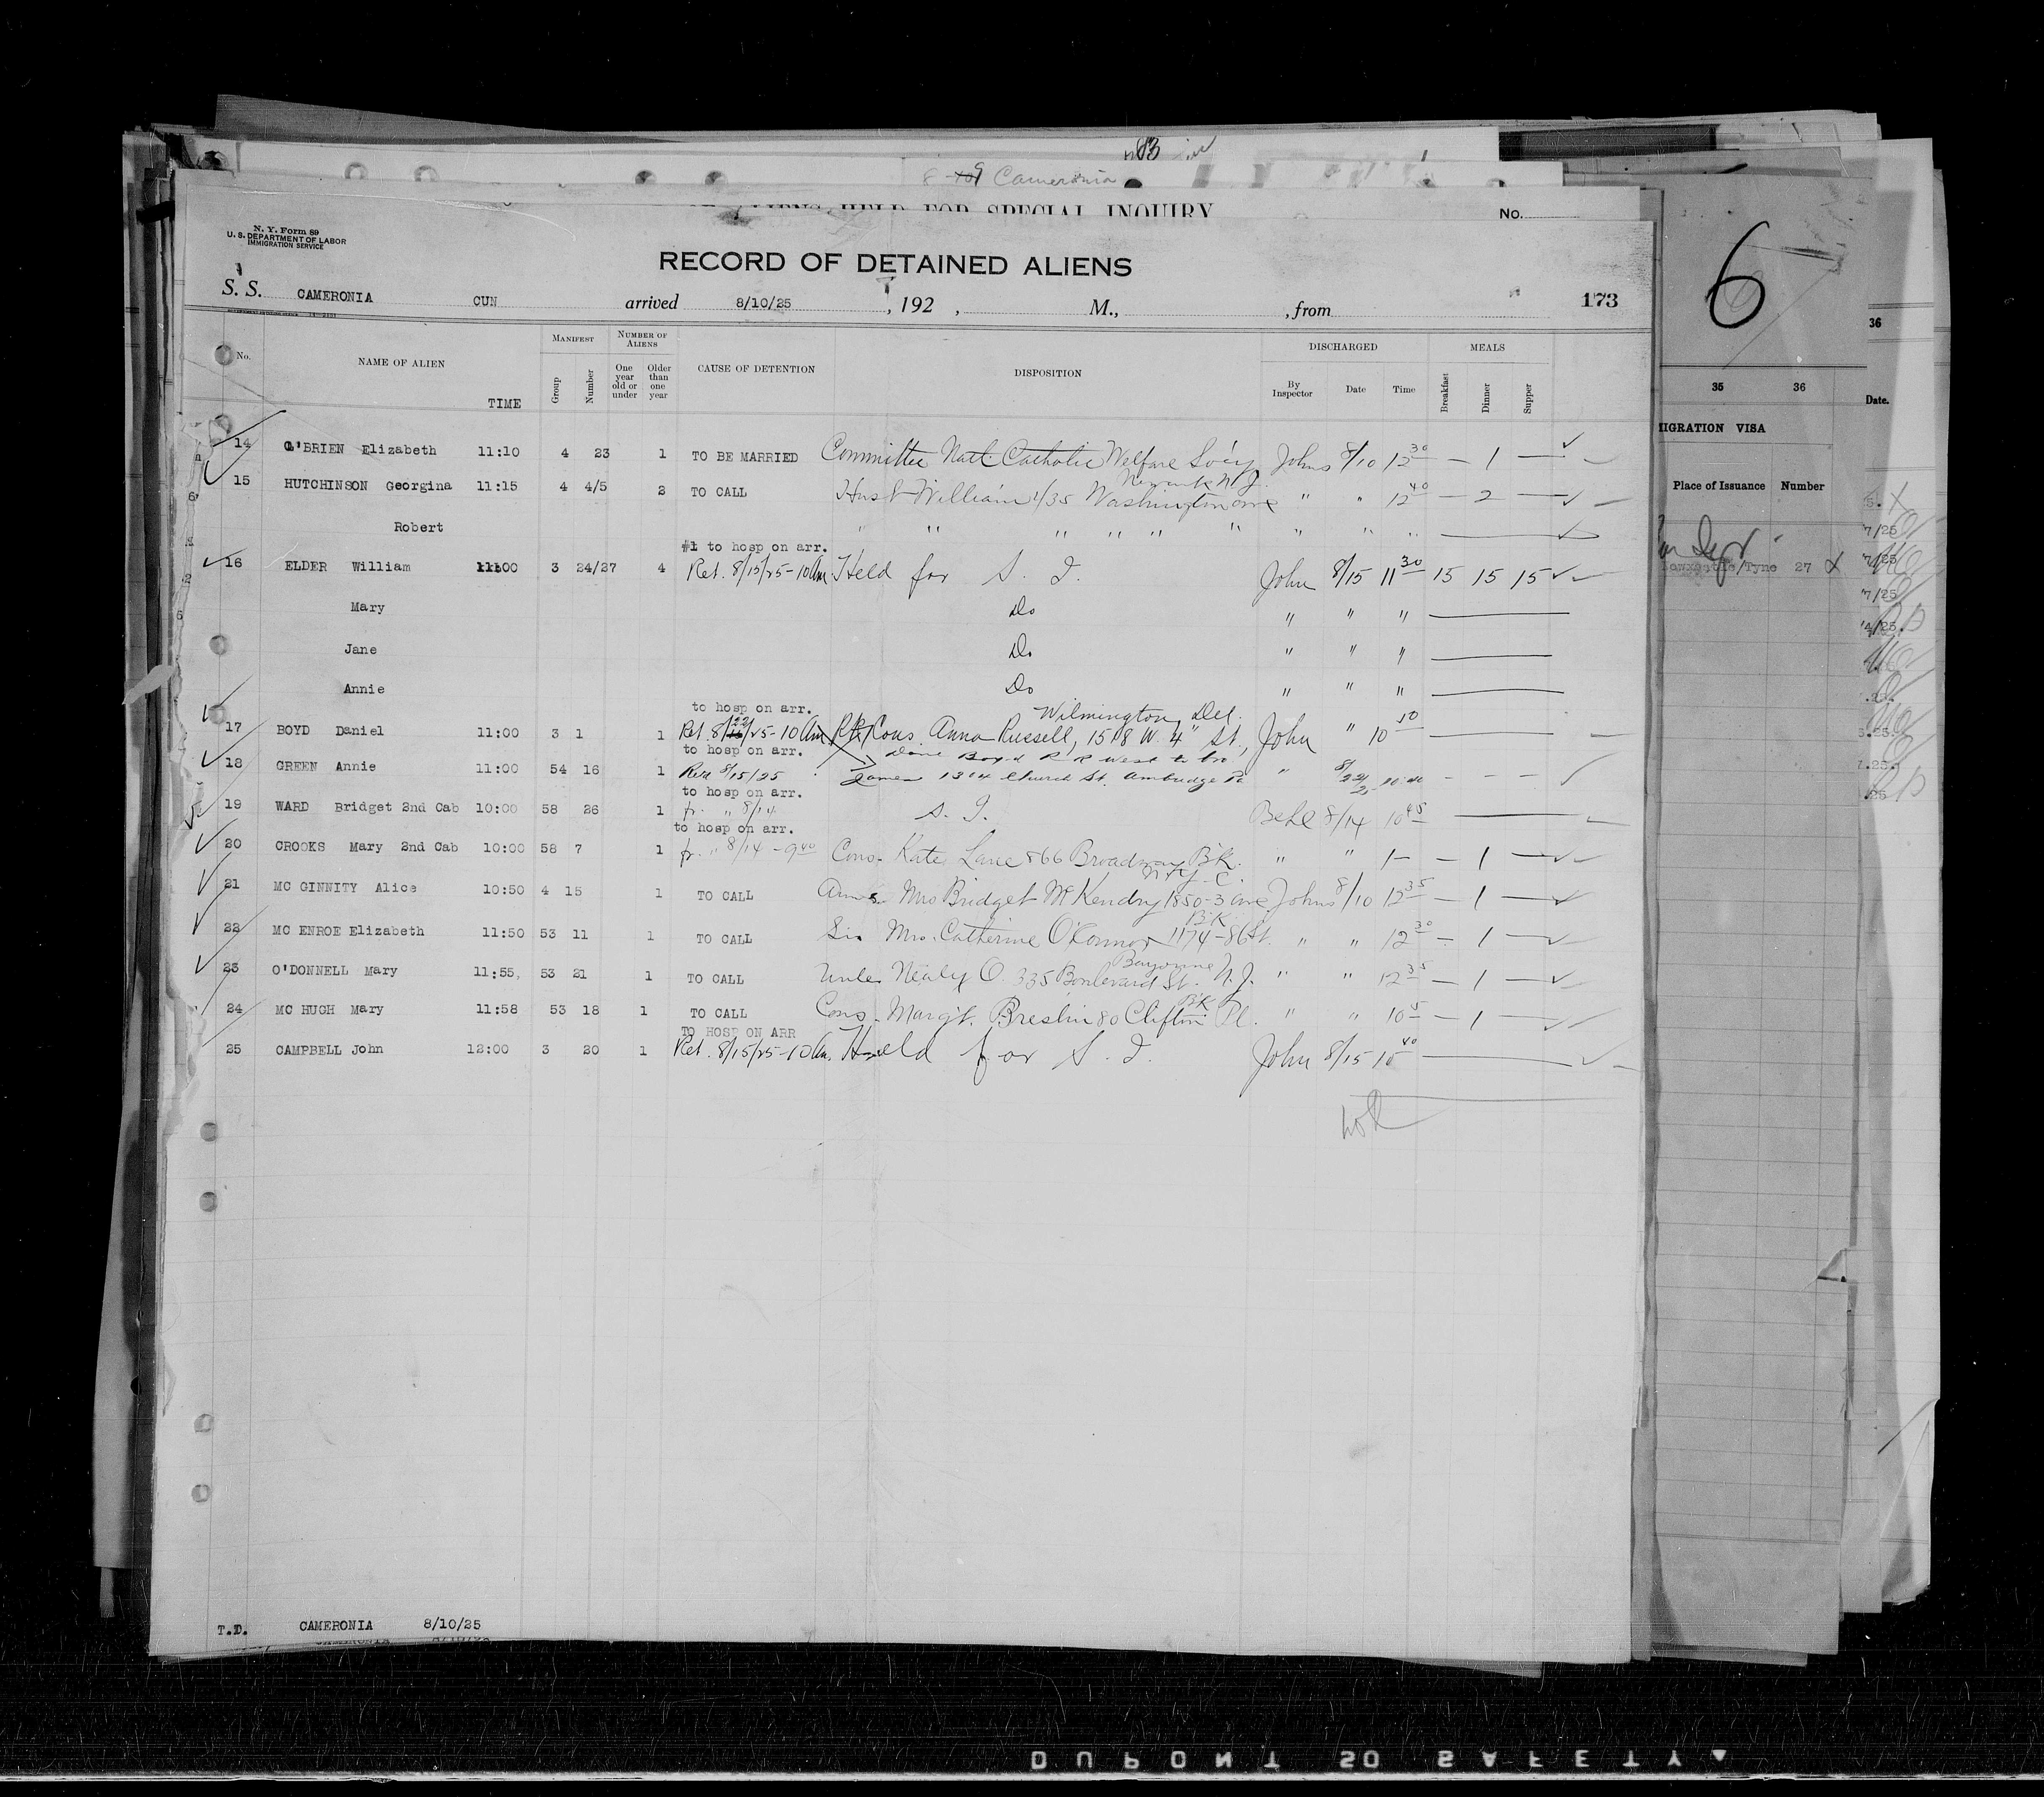 83
8 Cameronia
ALIENS HELD FOR SPECIAL INQUIRY
No.
N. Y. Form 89
U. S. DEPARTMENT OF LABOR
IMMIGRATION SERVICE
RECORD OF DETAINED ALIENS
S. S. CAMERONIA CUN arrived 8/10/25, 192 , M., , from 173
No. NAME OF ALIEN TIME MANIFEST Group Number NUMBER OF ALIENS One year old or under Older than one year CAUSE OF DETENTION DISPOSITION DISCHARGED By Inspector Date Time MEALS Breakfast Dinner Supper
14 O'BRIEN Elizabeth 11:10 4 23 1 TO BE MARRIED Committee Natl. Catholic Welfare Soc'y Johns 8/10 12 30 — 1 —
Newark N.J.
15 HUTCHINSON Georgina 11:15 4 4/5 2 TO CALL Husb William 1/35 Washington ave " " 12 40 — 2 —
Robert " " " " " " " " "
#1 to hosp on arr.
16 ELDER William 11:00 3 24/27 4 Ret. 8/15/25-10 Am Held for S. I. John 8/15 11 30 15 15 15
Mary Do " " "
Jane Do " " "
Annie Do " " "
to hosp on arr. Wilmington, Del.
17 BOYD Daniel 11:00 3 1 1 Ret. 8/22/25-10 Am Cons Anna Russell, 1518 W. 4" St, John " 10 50
to hosp on arr.
18 GREEN Annie 11:00 54 16 1 Ret 8/15/25 James 1304 Church St. Ambridge Pa "
to hosp on arr.
19 WARD Bridget 2nd Cab 10:00 58 26 1 fr. " 8/14 S. I. 8/14 10 45
to hosp on arr.
20 CROOKS Mary 2nd Cab 10:00 58 7 1 fr. " 8/14 - 9 40 Cons. Kate Lane 866 Broadway B'K. " " 1— — 1 —
N.Y.C.
21 MC GINNITY Alice 10:50 4 15 1 TO CALL Mrs Bridget McKendry 1850-3 ave Johns 8/10 12 35 — 1 —
B'K
22 MC ENROE Elizabeth 11:50 53 11 1 TO CALL Sis Mrs. Catherine O'Connor 1174-86 St. " " 12 30 — 1 —
Bayonne
23 O'DONNELL Mary 11:55, 53 21 1 TO CALL Uncle Nealy O. 335 Boulevard St. N.J. " " 12 35 — 1 —
B'K
24 MC HUGH Mary 11:58 53 18 1 TO CALL Cons. Marg't. Breslin 80 Clifton Pl. " " 10 5 — 1 —
TO HOSP ON ARR
25 CAMPBELL John 12:00 3 20 1 Ret. 8/15/25-10 Am. Held for S. I. John 8/15 10 40
T.D. CAMERONIA 8/10/25
6
35 36
IMMIGRATION VISA
Place of Issuance Number
Tyne 27 X
36
Date.
7/25
7/25
7/25
4/25.
DUPONT SO SAFETY